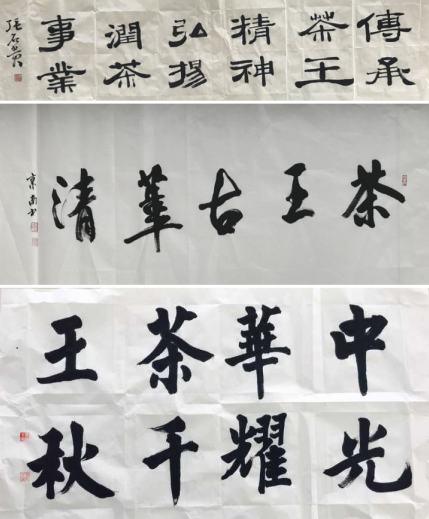 傳承
茶王
精神
弘揚
潤茶
事業
茶王古華清
中華茶王
光耀千秋